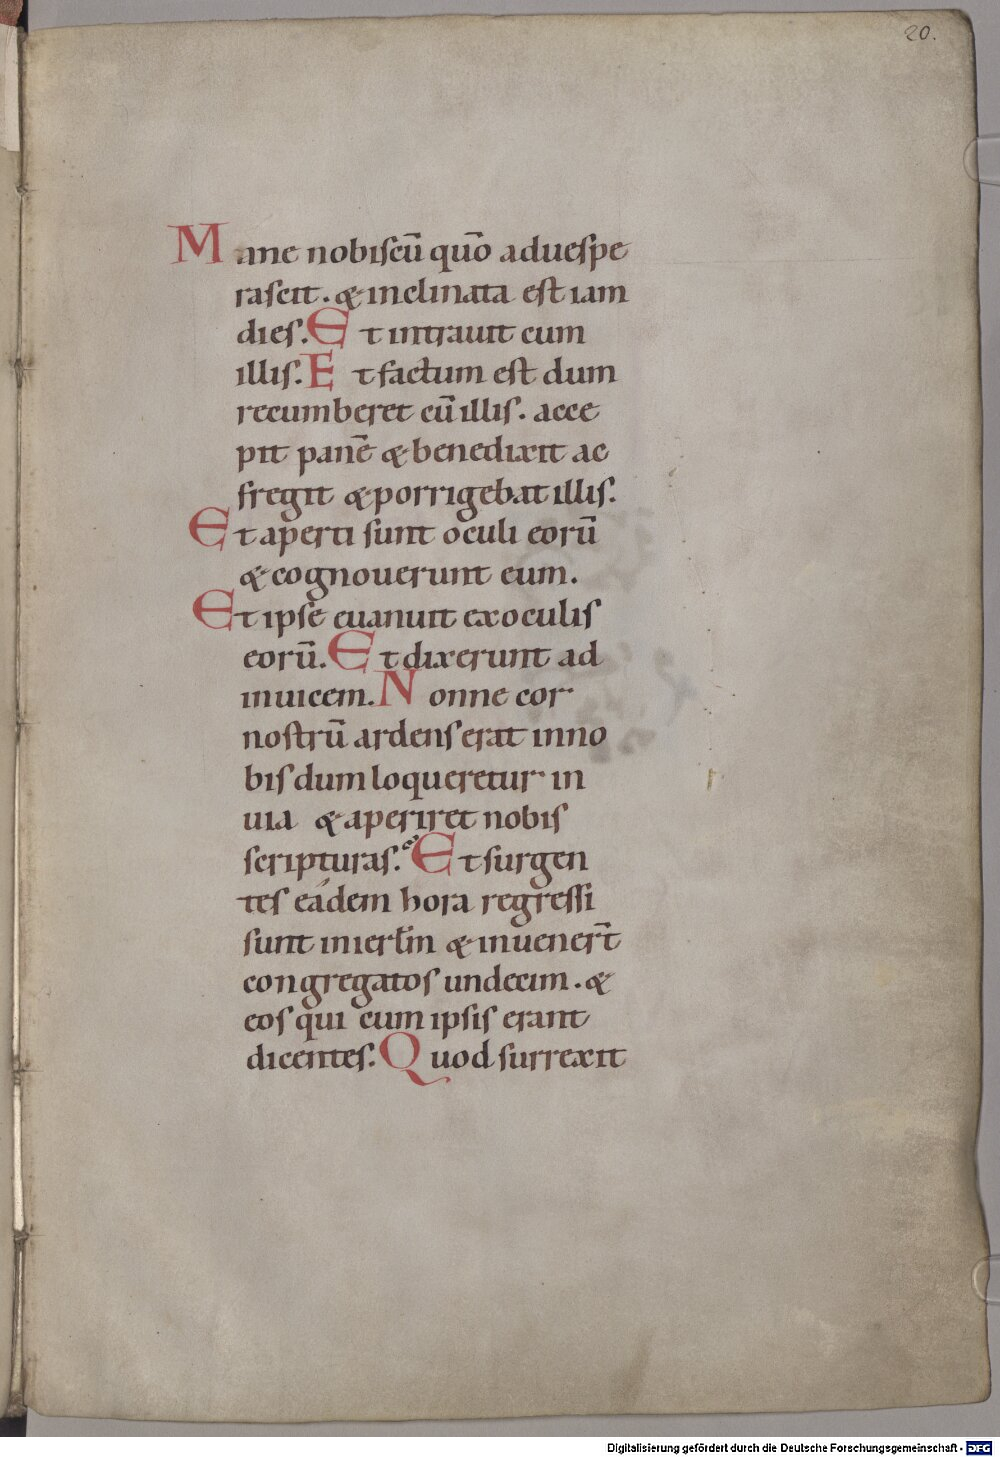 20.
Mane nobiscū quō aduespe
rascit. & inclinata est iam
dies. Et intrauit cum
illis. Et factum est dum
recumberet cū illis. acce
pit panē & benedixit ac
fregit & porrigebat illis.
Et aperti sunt oculi eorū
& cognouerunt eum.
Et ipse euanuit ex oculis
eorū. Et dixerunt ad
inuicem. Nonne cor
nostrū ardens erat in no
bis dum loqueretur in
uia & aperiret nobis
scripturas. Et surgen
tes eádem hora regressi
sunt in ierl̄m & inuener̄t
congregatos undecim. &
eos qui cum ipsis erant
dicentes. Quod surrexit
Digitalisierung gefördert durch die Deutsche Forschungsgemeinschaft - DFG